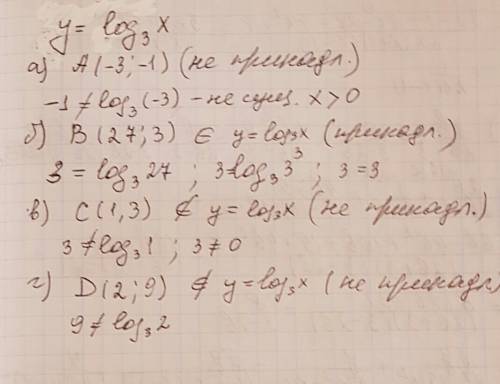 y = log₃ x
а) A(-3; -1) (не принадл.)
-1 ≠ log₃(-3) - не сущ. x > 0
б) B(27; 3) ∈ y = log₃x (принадл.)
3 = log₃ 27 ; 3 = log₃ 3³ ; 3 = 3
в) C(1, 3) ∉ y = log₃x (не принадл.)
3 ≠ log₃ 1 ; 3 ≠ 0
г) D(2; 9) ∉ y = log₃x (не принадл)
9 ≠ log₃ 2